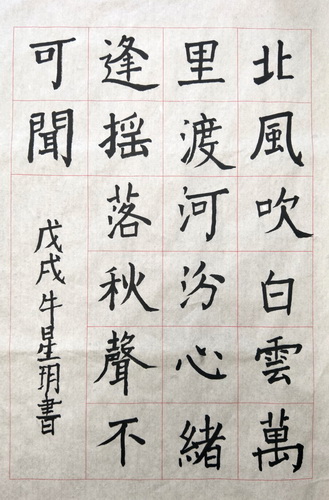 北風吹白雲萬
里渡河汾心緒
逢揺落秋聲不
可聞
戊戌牛星玥書